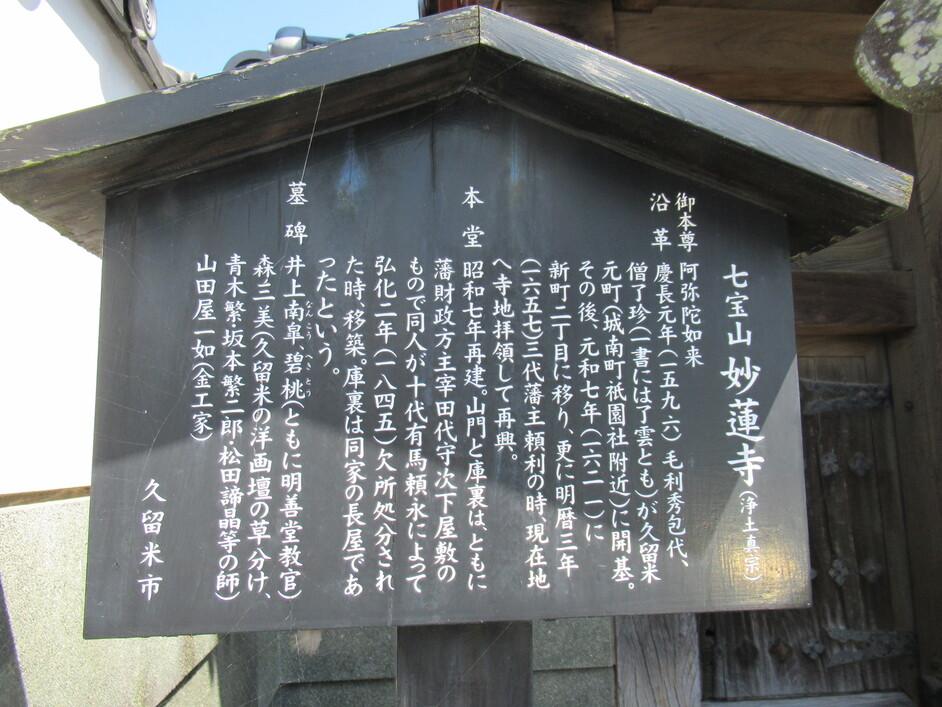 七宝山 妙蓮寺(浄土真宗)
御本尊 阿弥陀如来
沿革 慶長元年(一五九六)毛利秀包代、
僧了珍(一書には了雲とも)が久留米
元町(城南町祇園社附近)に開基。
その後、元和七年(一六二一)に
新町二丁目に移り、更に明暦三年
(一六五七)三代藩主頼利の時、現在地
へ寺地拝領して再興。
本堂 昭和七年再建。山門と庫裏は、ともに
藩財政方主宰田代守次下屋敷の
もので同人が十代有馬頼永によって
弘化二年(一八四五)欠所処分され
た時、移築。庫裏は同家の長屋であ
ったという。
墓碑 井上南皐、碧桃(ともに明善堂教官)
なんこう へきとう
森三美(久留米の洋画壇の草分け、
青木繁・坂本繁二郎・松田諦晶等の師)
山田屋一如(金工家)
久留米市